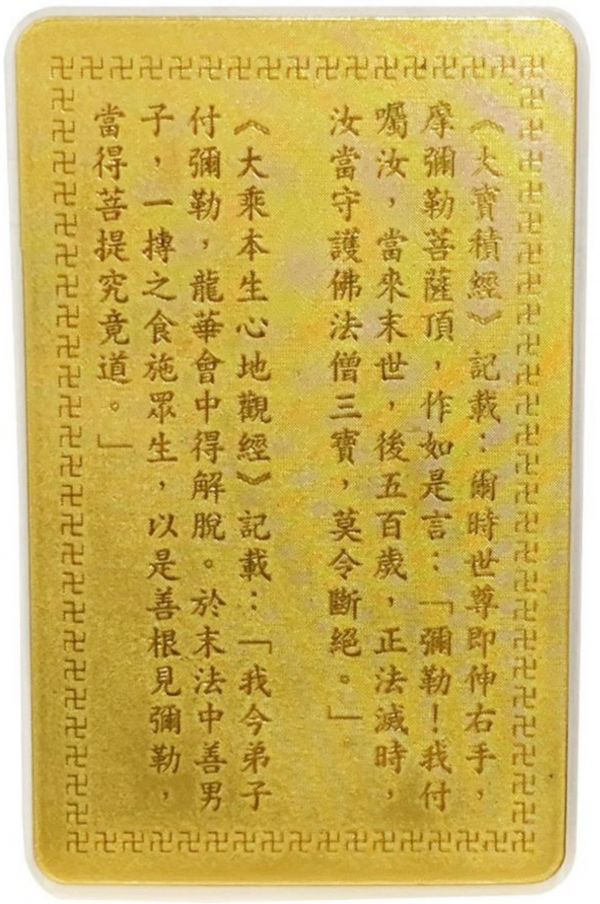 《大寶積經》記載：爾時世尊即伸右手，
摩彌勒菩薩頂，作如是言：「彌勒！我付
囑汝，當來末世，後五百歲，正法滅時，
汝當守護佛法僧三寶，莫令斷絕。」
《大乘本生心地觀經》記載：「我今弟子
付彌勒，龍華會中得解脫。於末法中善男
子，一摶之食施眾生，以是善根見彌勒，
當得菩提究竟道。」